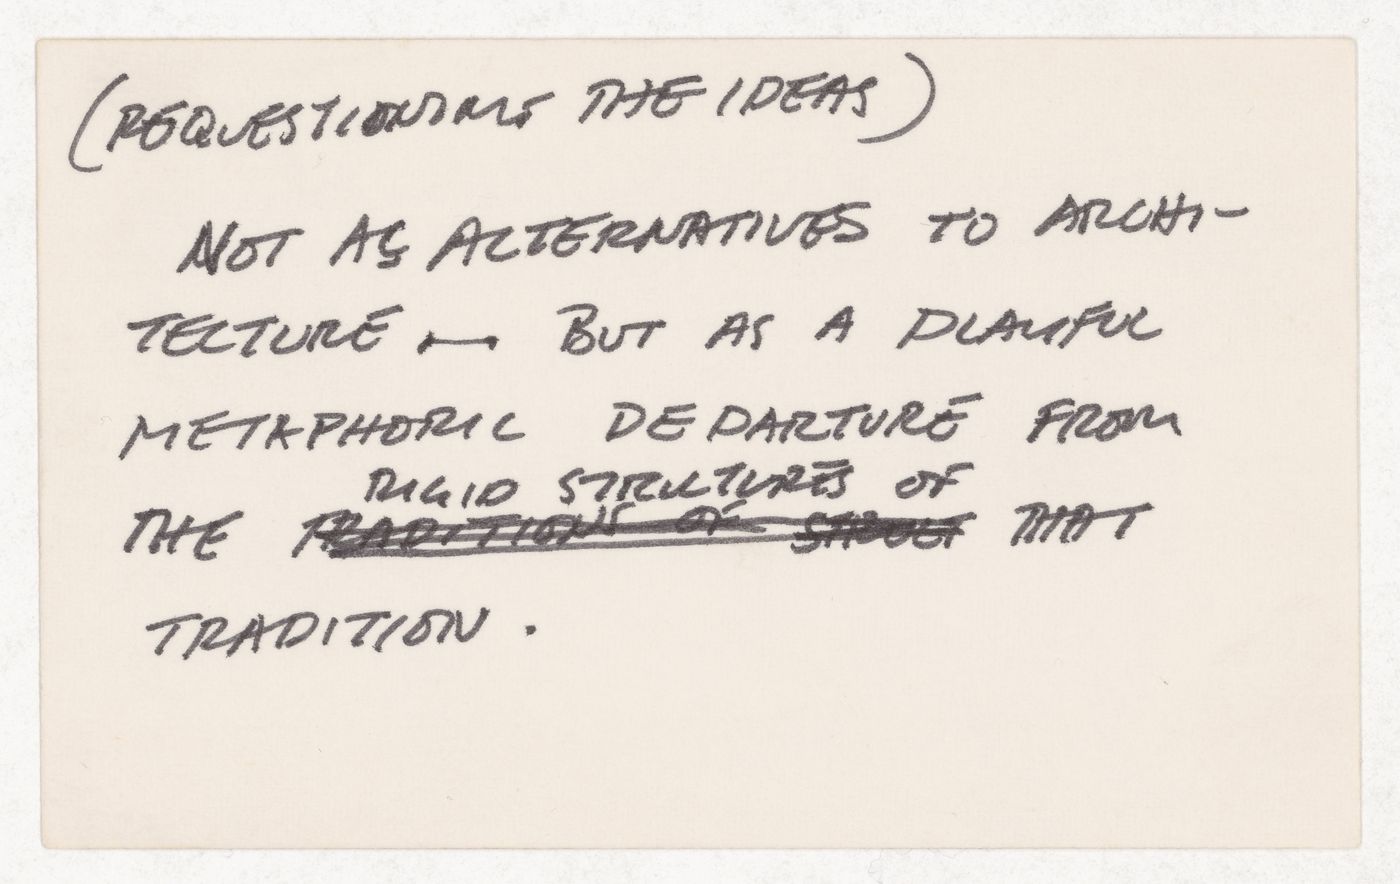 (REQUESTIONING THE IDEAS)
NOT AS ALTERNATIVES TO ARCHI-
TECTURE — BUT AS A PLAYFUL
METAPHORIC DEPARTURE FROM
RIGID STRUCTURES OF
THE TRADITIONS OF STRUCT THAT
TRADITION.